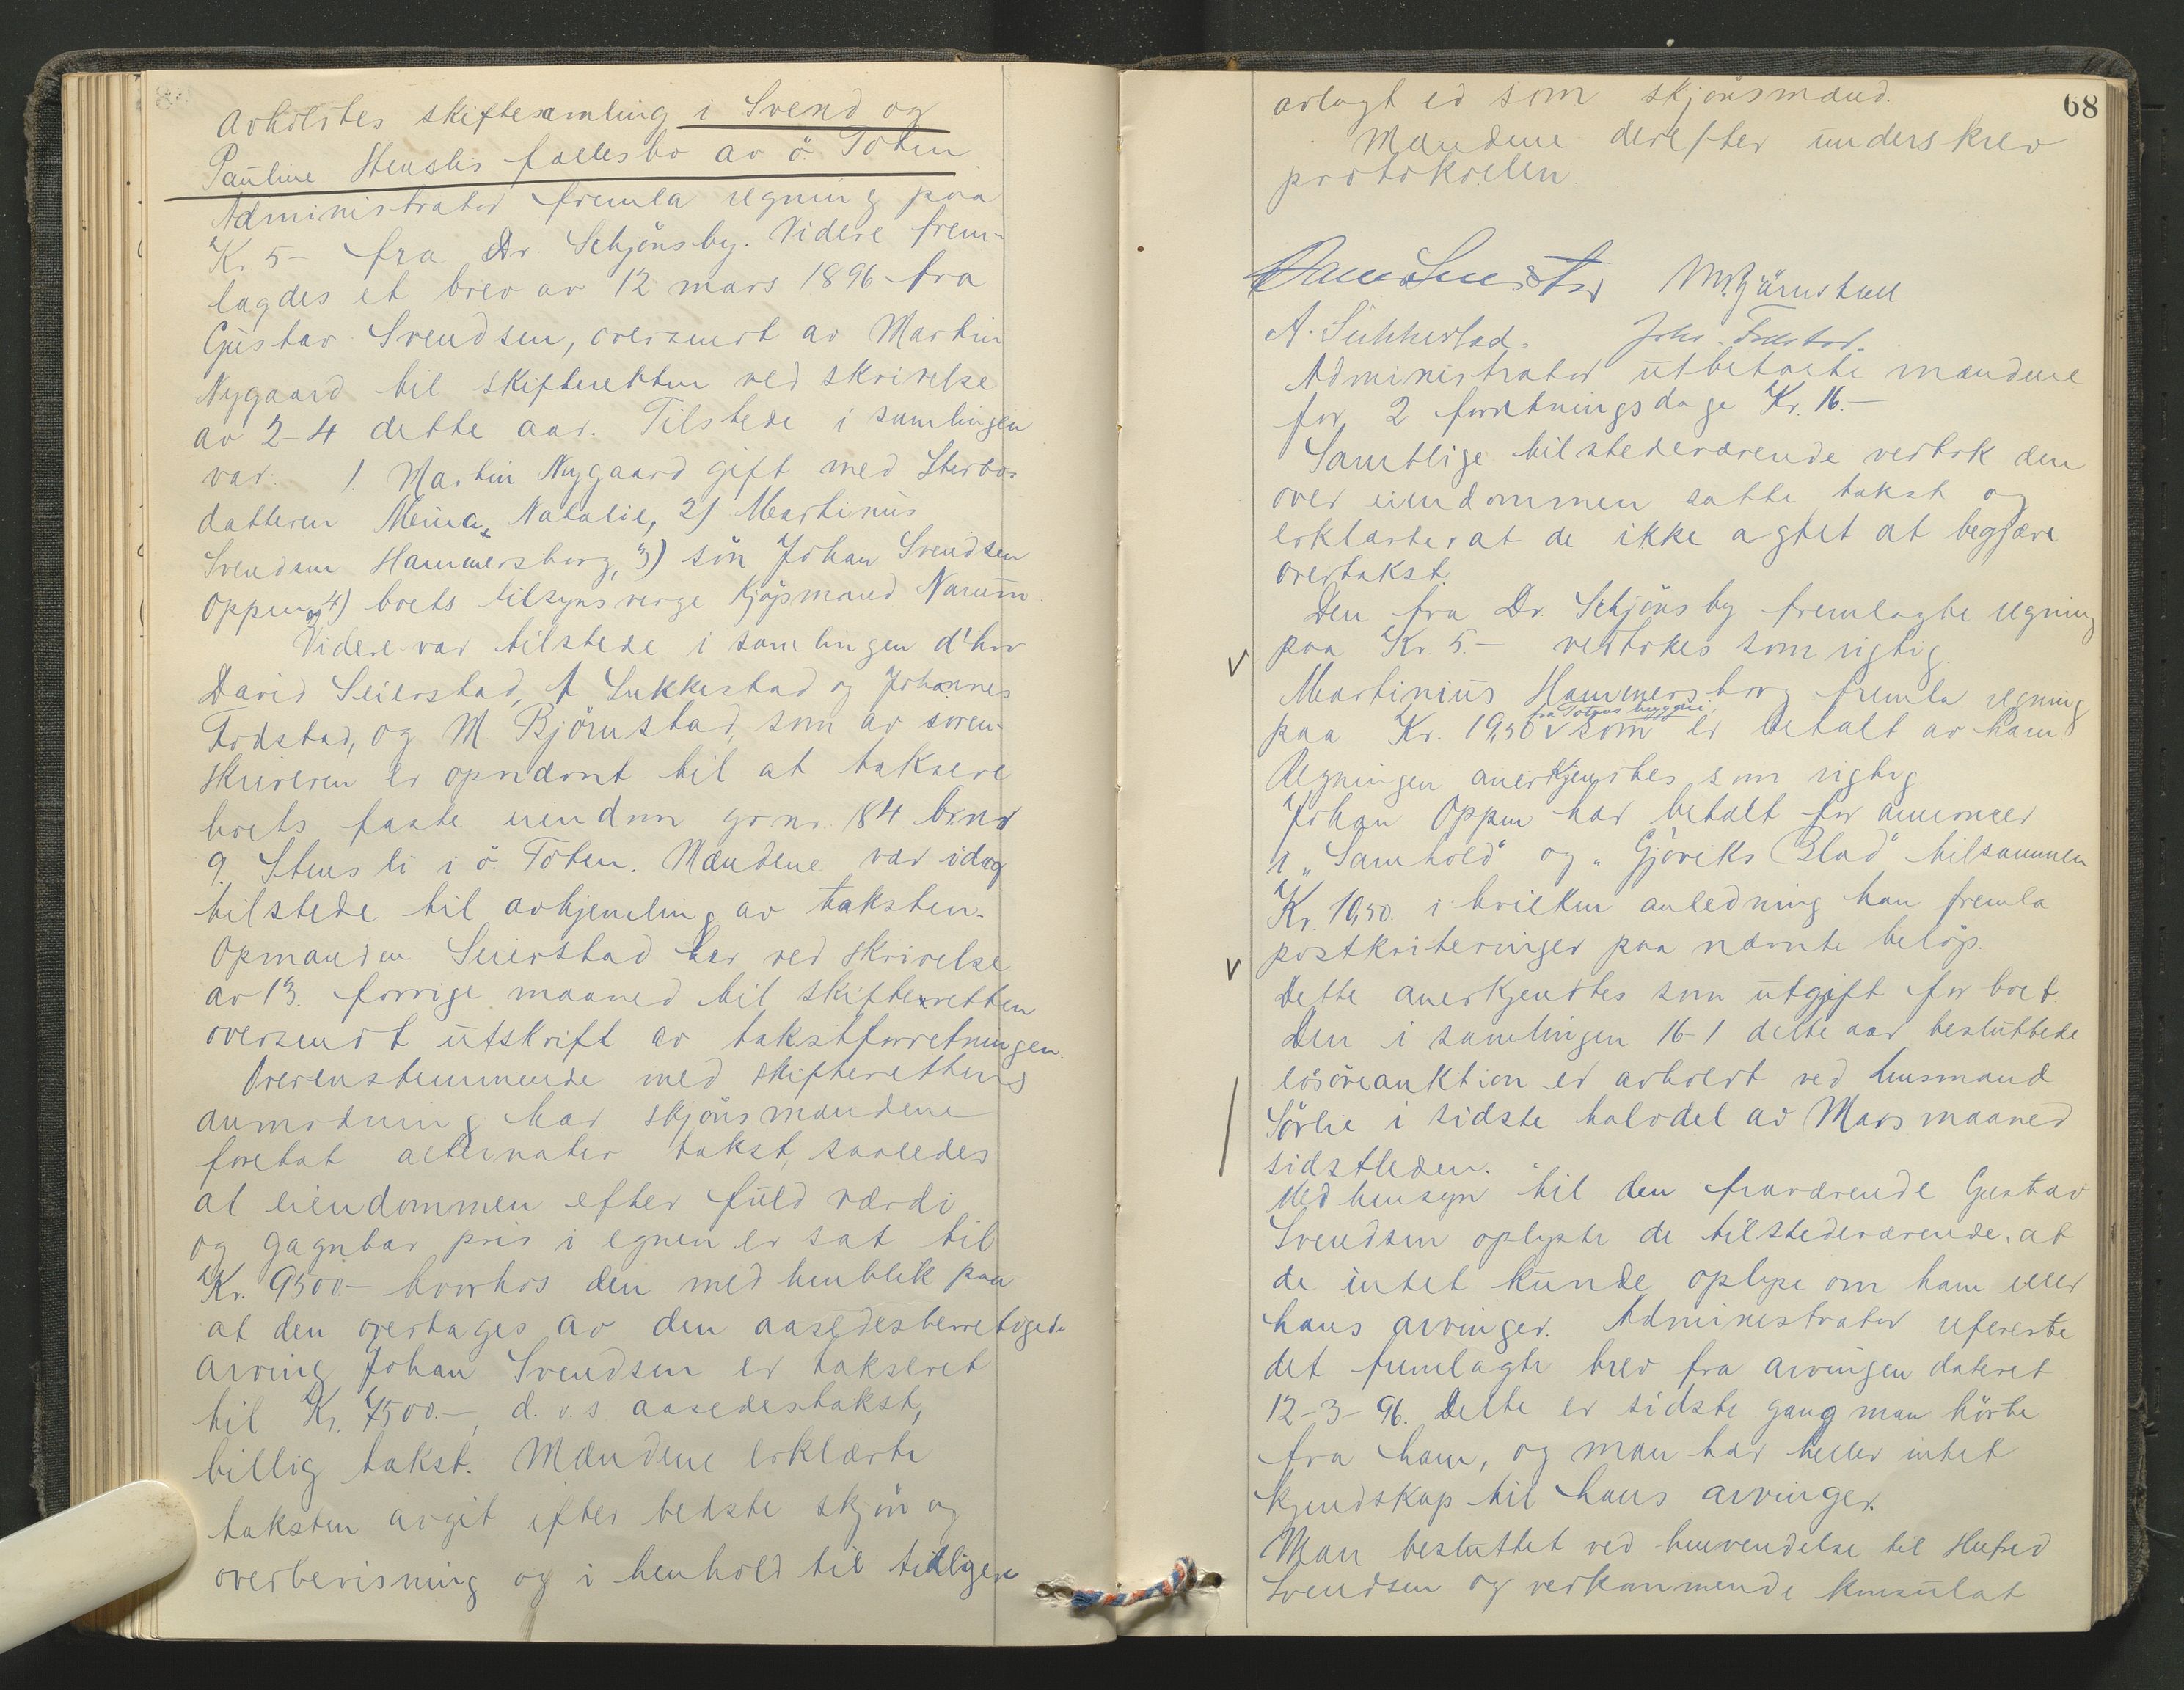 avholdtes skiftesamling i Svend og
Pauline Stenslis fællesbo av ö Toten.
Administrator fremla regning paa
Kr. 5- fra Dr. Schjönsby. Videre frem-
lagdes et brev av 12 mars 1896 fra
Gustav Svendsen, oversendt av Martin
Nygaard til skifteretten ved skrivelse
av 2-4 dette aar. Tilstede i samlingen
var: 1. Martin Nygaard gift med Sterbo-
datteren Natalie, 2) Martinus
Svendsen Hammersborg, 3) sön Johan Svendsen
Oppen og 4) boets tilsynsverge kjöpmand Narum.
Videre var tilstede i samlingen d'hrr
David Seierstad, A Sukkestad og Johannes
Fodstad, og M. Björnstad, som av soren-
skriveren er opnævnt til at taksere
boets faste eiendom gr. nr. 184 br. nr
9. Stensli i ö. Toten. Mændene var idag
tilstede til avhjemling av taksten.
Opmanden Seierstad har ved skrivelse
av 13. forrige maaned til skifteretten
oversendt utskrift av takstforretningen.
Overenstemmende med skifterettens
anmodning har skjönsmændene
foretat alternativ takst, saaledes
at eiendommen efter fuld værdi
og gagnbar pris i egnen er sat til
Kr. 9500- hvorhos den med henblik paa
at den overtages av den aasædesberettigede
arving Johan Svendsen er takseret
til Kr. 7500.-, d. v. s aasædestakst,
billig takst. Mændene erklærte
taksten avgit efter bedste skjön og
overbevisning og i henhold til tidligere
68
avlagt ed som skjönsmænd.
Mændene derefter underskrev
protokollen.
M. Björnstad
A. Sukkestad. Johs. Fodstad.
Administrator utbetalte mændene
for 2 forretningsdage Kr. 16.-
Samtlige tilstedeværende vedtok den
over eiendommen satte takst og
erklærter at de ikke agtet at begjære
overtakst.
Den fra Dr. Schjönsby fremlagte regning
paa Kr. 5.- vedtokes som rigtig.
Martinius Hammersborg fremla regning
fra Totens byggeri
paa Kr. 19,50 v som er betalt av ham.
Regningen anerkjendtes som rigtig.
Johan Oppen har betalt for annoncer
i „Samhold" og „Gjöviks Blad" tilsammen
Kr. 10,50. i hvilken anledning han fremla
postkvitteringer paa nævnte belöp.
Dette anerkjendtes som utgift for boet.
Den i samlingen 16-1 dette aar besluttede
lösöreauktion er avholdt ved lensmand
Sörlie i sidste halvdel av Mars maaned
sidstleden.
Med hensyn til den fraværende Gustav
Svendsen oplyste de tilstedeværende, at
de intet kunde oplyse om ham eller
hans arvinger. Administrator refererte
det fremlagte brev fra arvingen dateret
12-3-96. Dette er sidste gang man hörte
fra ham, og man har heller intet
kjendskap til hans arvinger.
Man besluttet ved henvendelse til
Svendsen og vedkommende konsulat